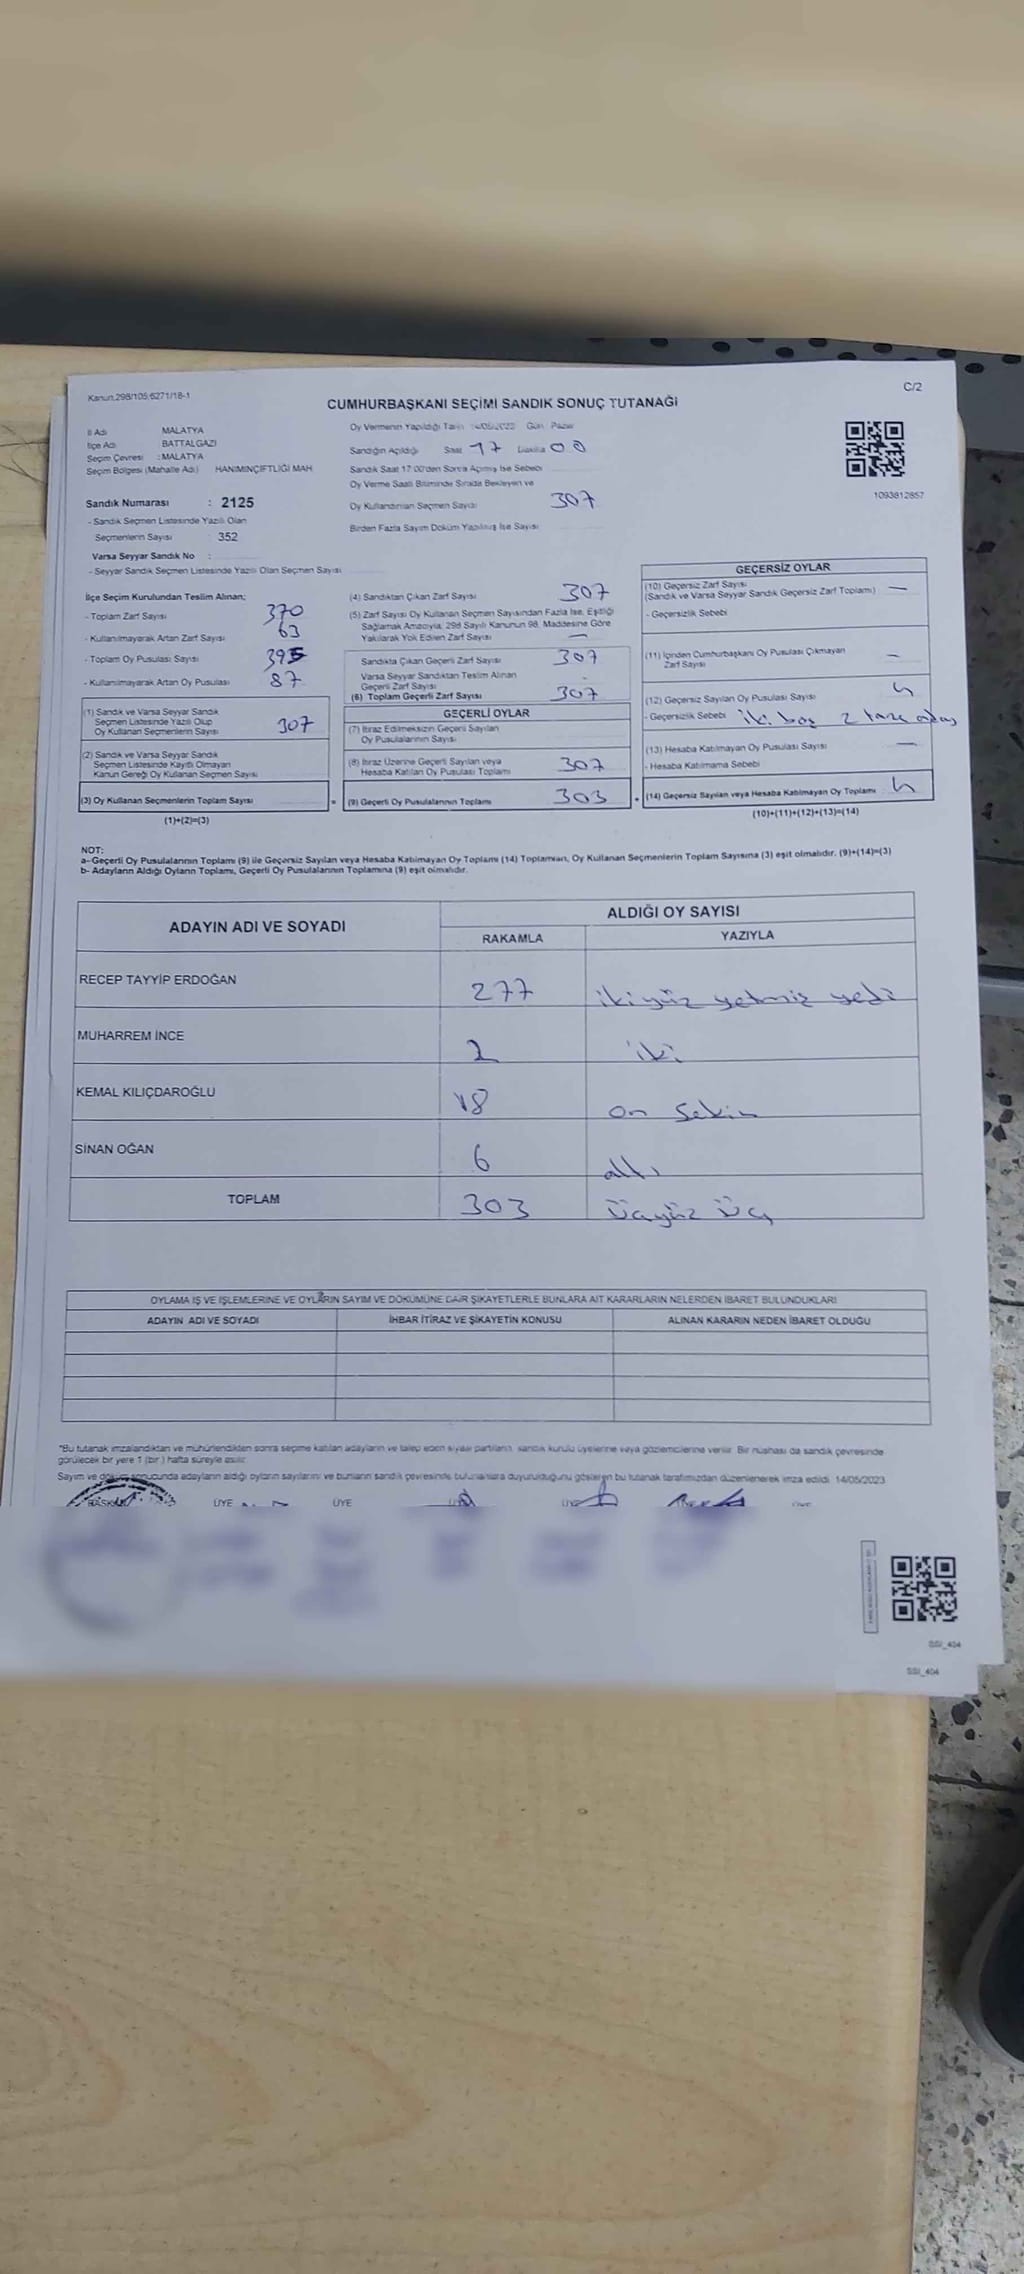 Kanun.298/105;6271/18-1
C/2
CUMHURBAŞKANI SEÇİMİ SANDIK SONUÇ TUTANAĞI
İl Adı MALATYA
İlçe Adı BATTALGAZI
Seçim Çevresi : MALATYA
Seçim Bölgesi (Mahalle Adı) HANIMINÇİFTLİĞİ MAH
Sandık Numarası : 2125
- Sandık Seçmen Listesinde Yazılı Olan
Seçmenlerin Sayısı : 352
Varsa Seyyar Sandık No :
- Seyyar Sandık Seçmen Listesinde Yazılı Olan Seçmen Sayısı
Oy Vermenin Yapıldığı Tarih 14/05/2023 Gün: Pazar
Sandığın Açıldığı Saat 17 Dakika 00
Sandık Saat 17:00'den Sonra Açılmış İse Sebebi
Oy Verme Saati Bitiminde Sırada Bekleyen ve
Oy Kullandırılan Seçmen Sayısı 307
Birden Fazla Sayım Döküm Yapılmış İse Sayısı
1093812857
İlçe Seçim Kurulundan Teslim Alınan;
- Toplam Zarf Sayısı 370
- Kullanılmayarak Artan Zarf Sayısı 63
- Toplam Oy Pusulası Sayısı 395
- Kullanılmayarak Artan Oy Pusulası 87
(1) Sandık ve Varsa Seyyar Sandık
Seçmen Listesinde Yazılı Olup
Oy Kullanan Seçmenlerin Sayısı 307
(2) Sandık ve Varsa Seyyar Sandık
Seçmen Listesinde Kayıtlı Olmayan
Kanun Gereği Oy Kullanan Seçmen Sayısı
(3) Oy Kullanan Seçmenlerin Toplam Sayısı
(1)+(2)=(3)
(4) Sandıktan Çıkan Zarf Sayısı 307
(5) Zarf Sayısı Oy Kullanan Seçmen Sayısından Fazla İse, Eşitliği
Sağlamak Amacıyla, 298 Sayılı Kanunun 98. Maddesine Göre
Yakılarak Yok Edilen Zarf Sayısı —
Sandıkta Çıkan Geçerli Zarf Sayısı 307
Varsa Seyyar Sandıktan Teslim Alınan
Geçerli Zarf Sayısı -
(6) Toplam Geçerli Zarf Sayısı 307
GEÇERLİ OYLAR
(7) İtiraz Edilmeksizin Geçerli Sayılan
Oy Pusulalarının Sayısı
(8) İtiraz Üzerine Geçerli Sayılan veya
Hesaba Katılan Oy Pusulası Toplamı 307
= (9) Geçerli Oy Pusulalarının Toplamı 303 +
GEÇERSİZ OYLAR
(10) Geçersiz Zarf Sayısı
(Sandık ve Varsa Seyyar Sandık Geçersiz Zarf Toplamı) —
- Geçersizlik Sebebi
(11) İçinden Cumhurbaşkanı Oy Pusulası Çıkmayan
Zarf Sayısı —
(12) Geçersiz Sayılan Oy Pusulası Sayısı 4
- Geçersizlik Sebebi iki boş 2 tane
(13) Hesaba Katılmayan Oy Pusulası Sayısı —
- Hesaba Katılmama Sebebi
(14) Geçersiz Sayılan veya Hesaba Katılmayan Oy Toplamı 4
(10)+(11)+(12)+(13)=(14)
NOT:
a- Geçerli Oy Pusulalarının Toplamı (9) ile Geçersiz Sayılan veya Hesaba Katılmayan Oy Toplamı (14) Toplamları, Oy Kullanan Seçmenlerin Toplam Sayısına (3) eşit olmalıdır. (9)+(14)=(3)
b- Adayların Aldığı Oyların Toplamı, Geçerli Oy Pusulalarının Toplamına (9) eşit olmalıdır.
ADAYIN ADI VE SOYADI ALDIĞI OY SAYISI
RAKAMLA YAZIYLA
RECEP TAYYİP ERDOĞAN 277 ikiyüz yetmiş yedi
MUHARREM İNCE 2 iki
KEMAL KILIÇDAROĞLU 18 on sekiz
SİNAN OĞAN 6 altı
TOPLAM 303 üçyüz üç
OYLAMA İŞ VE İŞLEMLERİNE VE OYLARIN SAYIM VE DÖKÜMÜNE DAİR ŞİKAYETLERLE BUNLARA AİT KARARLARIN NELERDEN İBARET BULUNDUKLARI
ADAYIN ADI VE SOYADI İHBAR İTİRAZ VE ŞİKAYETİN KONUSU ALINAN KARARIN NEDEN İBARET OLDUĞU
*Bu tutanak imzalandıktan ve mühürlendikten sonra seçime katılan adayların ve talep eden siyasi partilerin, sandık kurulu üyelerine veya gözlemcilerine verilir. Bir nüshası da sandık çevresinde
görülecek bir yere 1 (bir) hafta süreyle asılır.
Sayım ve döküm sonucunda adayların aldığı oyların sayılarını ve bunların sandık çevresinde bulunanlara duyurulduğunu gösteren bu tutanak tarafımızdan düzenlenerek imza edildi. 14/05/2023
BAŞKAN ÜYE ÜYE ÜYE ÜYE ÜYE
SSI_404
SSI_404